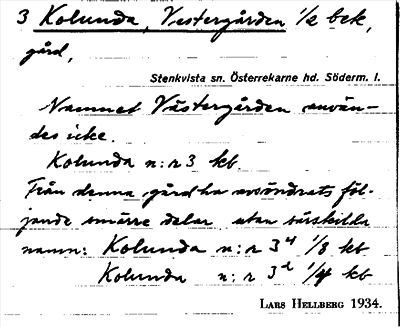 3 Kolunda, Västergården 1/2 bek,
gård,
Stenkvista sn. Österrekarne hd. Söderm. l.
Namnet Västergården använ-
des icke.
Kolunda n:r 3 kb
Från denna gård ha avsöndrats föl-
jande smärre delar utan särskilda
namn: Kolunda n:r 3⁴ 1/8 kb
Kolunda n:r 3² 1/4 kb
LARS HELLBERG 1934.